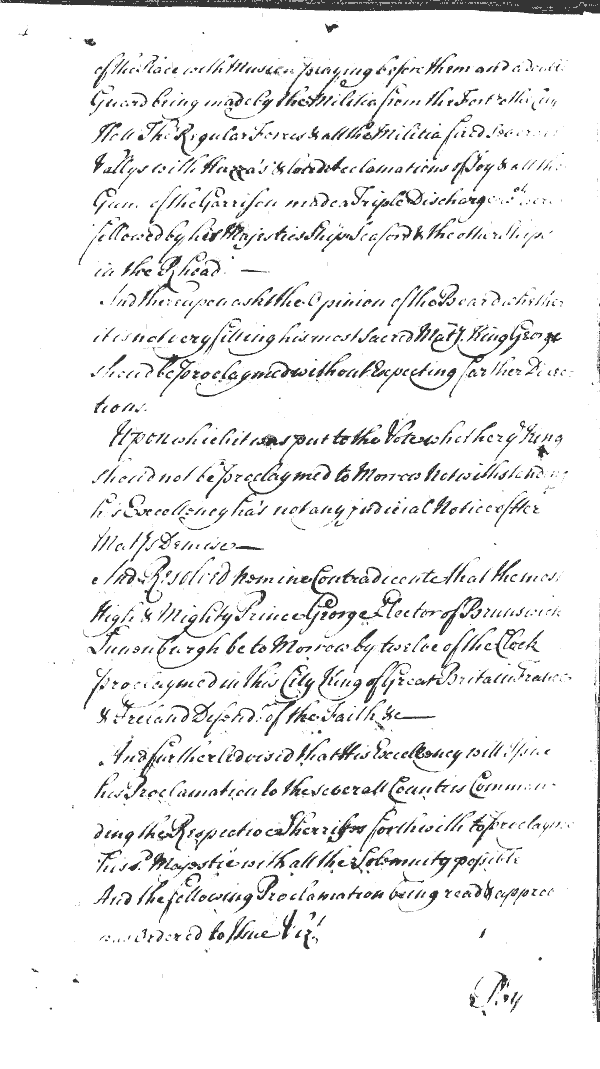 of the Place with Musick playing before them and a double
Guard being made by the Militia from the Fort to the City
Hall The Regular Forces & all the Militia fired Severall
Vallys with Huzza's & loud Acclamations of Joy & all the
Guns of the Garrison made a Triple Discharge & were
followed by his Majesties Ship Seaford & the other Ships
in the Rhoad —
And thereupon askt the Opinion of the Board whether
it is not very fitting his most Sacred Maty. King George
should be proclaymed without Expecting farther Direc-
tions.
Upon which it was put to the Vote whether ye King
should not be proclaymed to Morrow Notwithstanding
his Excellency has not any Judicial Notice of her
Matys Demise —
And Resolved Nemine Contradicente that the most
High & Mighty Prince George Elector of Brunswick
Lunenburgh be to Morrow by twelve of the Clock
proclaymed in this City King of Great Britain France
& Ireland Defendr. of the Faith &c —
And further Advised that His Excellency will Issue
his Proclamation to the severall Counties Comman-
ding the Respective Sherriffs forthwith to proclayme
his sd. Majestie with all the Solemnity possible
And the following Proclamation being read & approv
was Ordered to Issue Vizt.
By